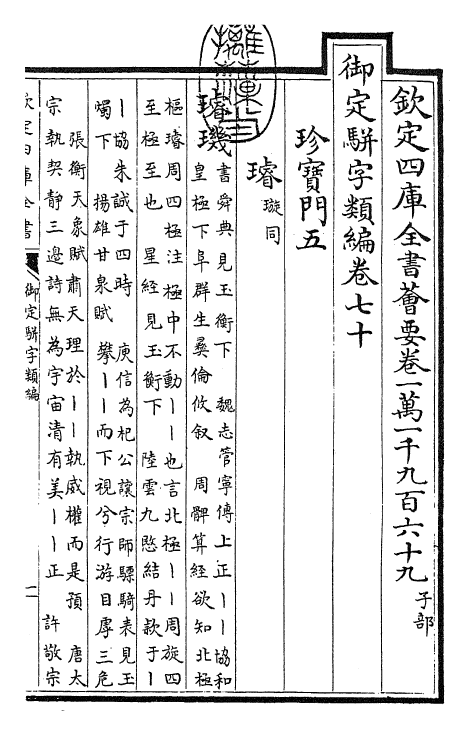 欽定四庫全書薈要卷一萬一千九百六十九 子部
御定駢字類編卷七十
珍寶門五
璿 璇同
璿璣 書舜典見玉衡下 魏志管寧傳上正丨丨協和
皇極下阜群生彞倫攸叙 周髀算經欲知北極
樞璿周四極注極中不動丨丨也言北極丨丨周旋四
至極至也 星經見玉衡下 陸雲九愍結丹款于丨
丨協朱誠于四時 庾信為杞公讓宗師驃騎表見玉
燭下 揚雄甘泉賦 攀丨丨而下視兮行游目虖三危
張衡天象賦肅天理於丨丨執威權而是預 唐太
宗執契靜三邊詩無為宇宙清有美丨丨正 許敬宗
欽定四庫全書
御定駢字類編
一